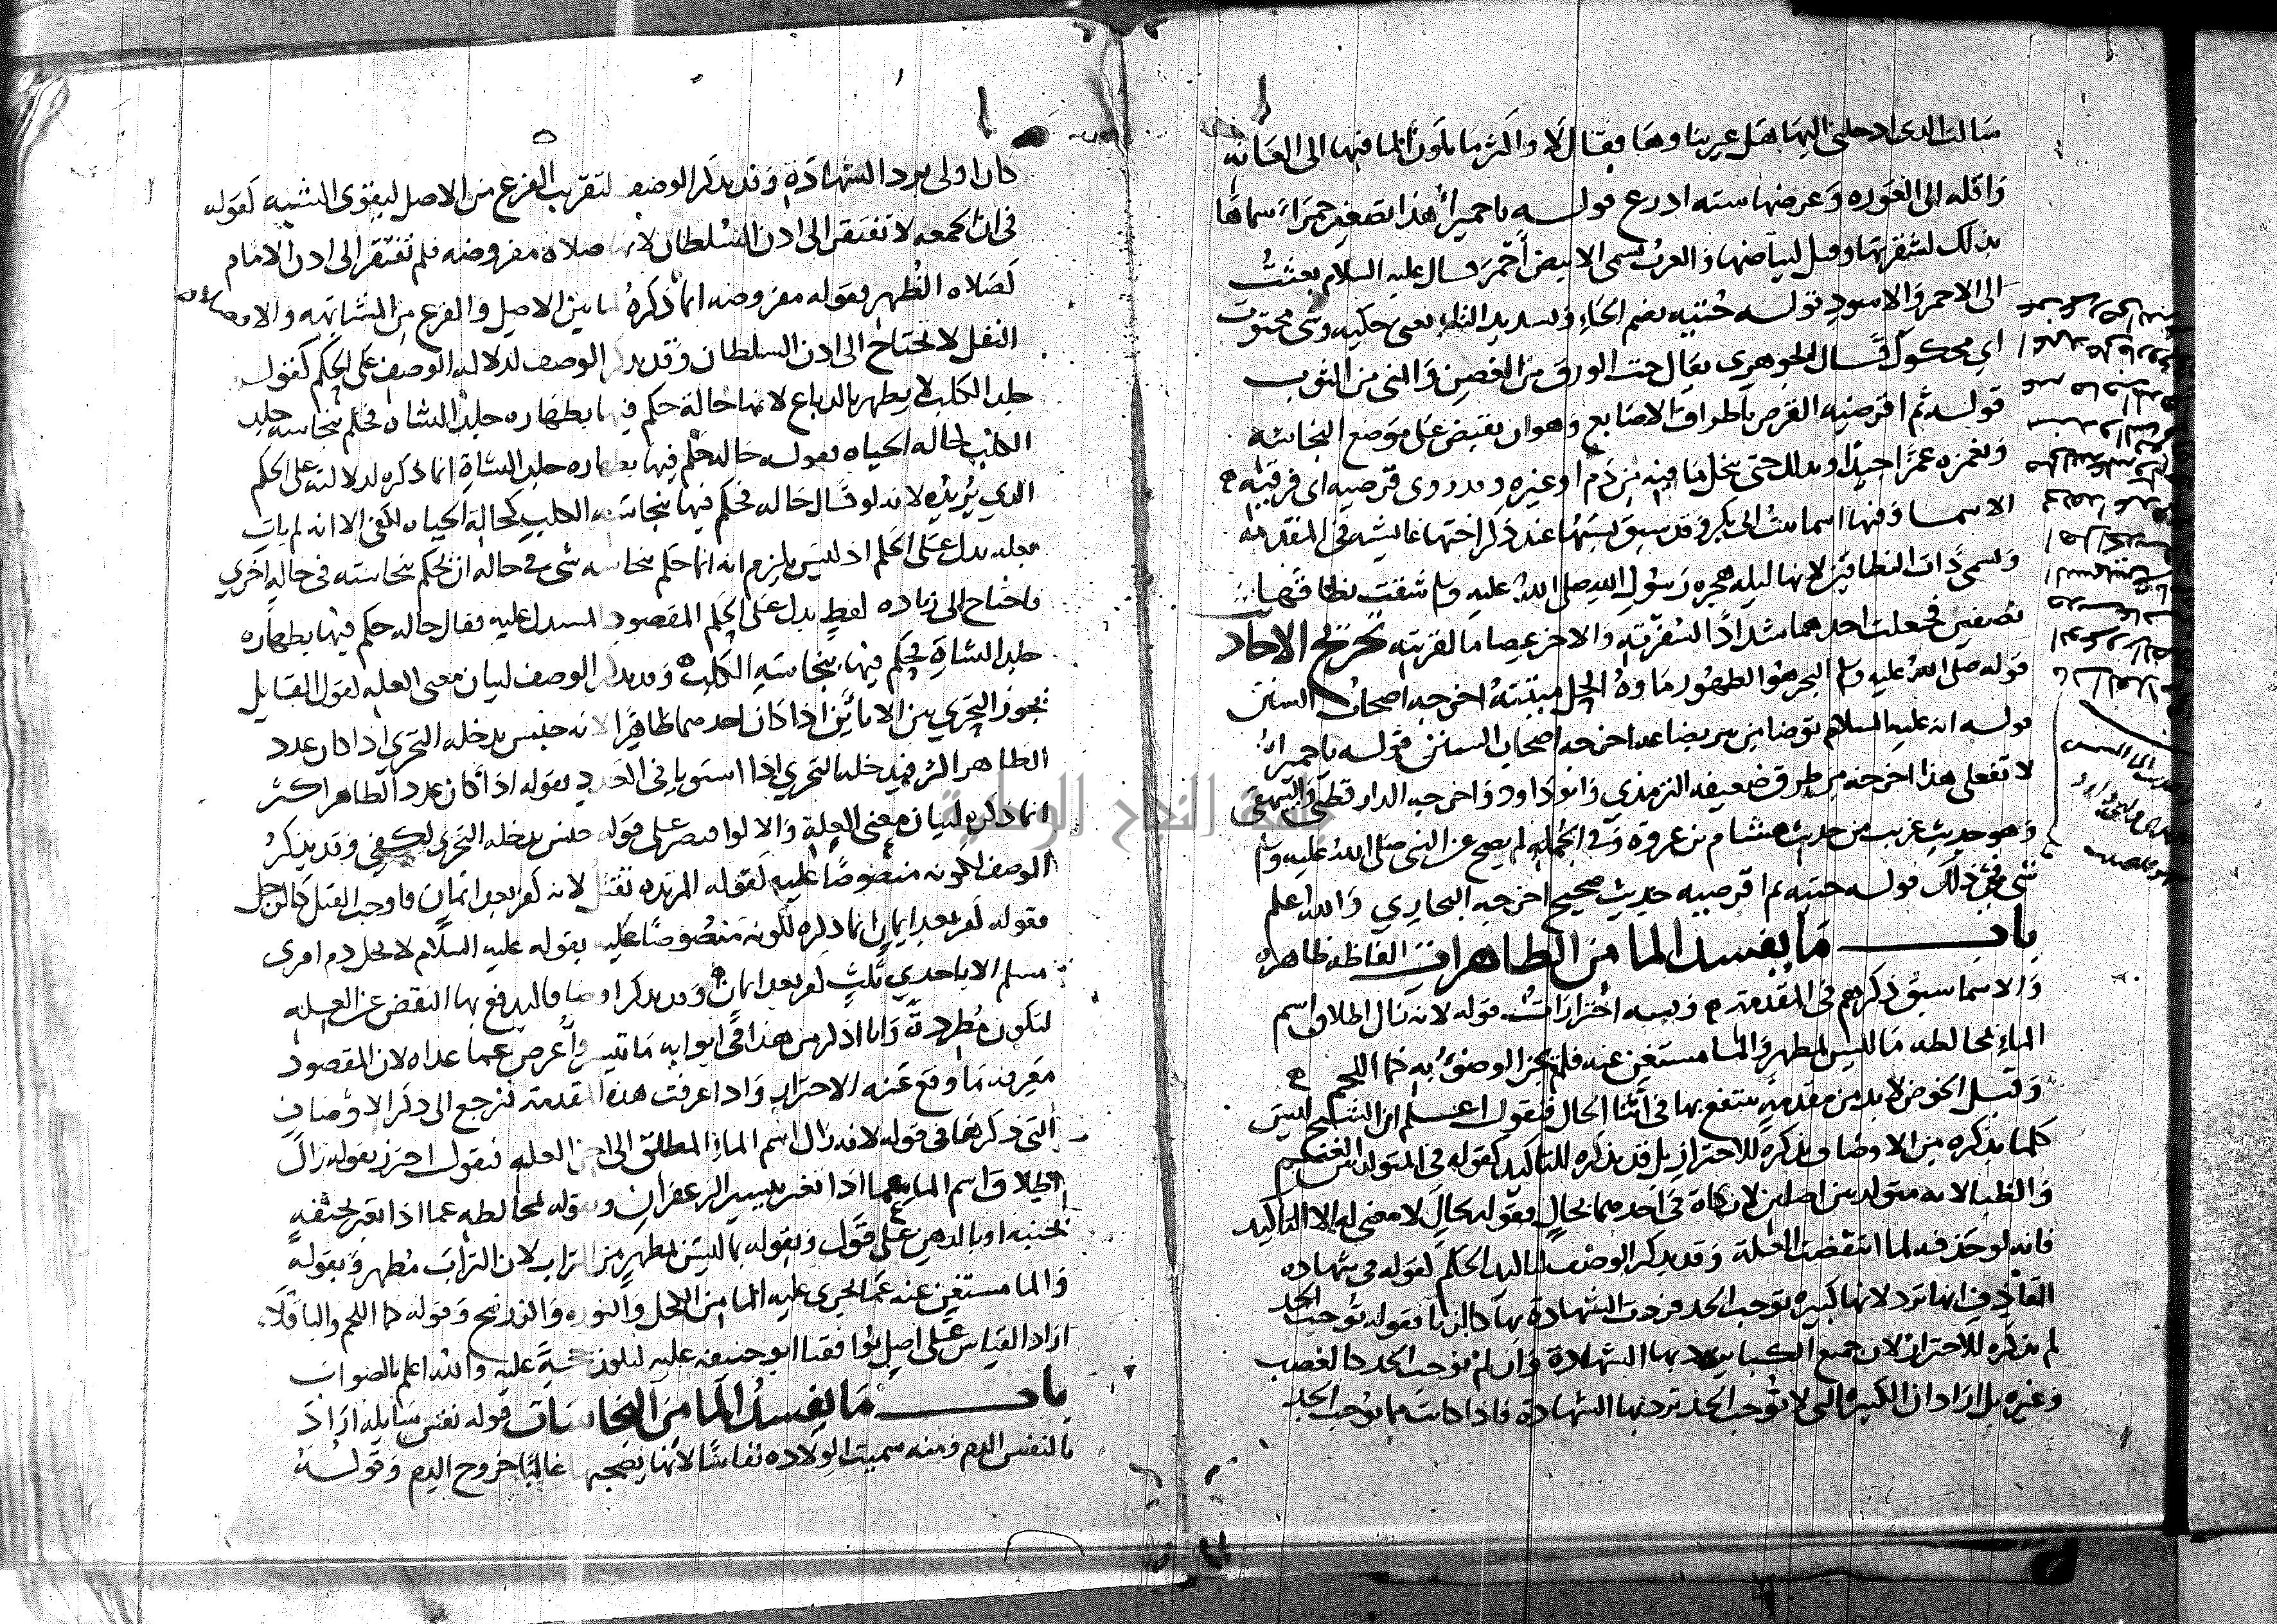 سالت الذى ادخلنى اليها هل غير بناوها فقال لا واكثر ما يكون الما فيها الى العانه
واقله الى العوره وعرضها سته ادرع قوله يا حميرا هذا تصغير حمرا سماها
بذلك لشقرتها وقيل لبياضها والعرب تسمى الابيض احمر قال عليه السلام بعثت
الى الاحمر والاسود قوله حتيه بضم الحاء وتشديد التاء يعنى حكيه وشى محتوت
اى محكوك قال الجوهرى يقال حت الورق من الغصن والمنى من الثوب
قوله ثم اقرصيه القرص باطراف الاصابع وهو ان يقبض على موضع النجاسه
ويغمزه غمزا جيدا ويدلك حتى ينحل ما فيه من دم او غيره وقد روى قرصيه اى فرقيه
الاسما وفيها اسما بنت ابى بكر وقد سبق نسبها عند ذكر اختها عايشه فى المقدمه
وتسمى ذات النطاقين لانها ليله هجره رسول الله صلى الله عليه وسلم شقت نطاقها
نصفين فجعلت احدهما شدادا لسفرته والاخر عصاما لقربته تخريج الاحاد
قوله صلى الله عليه وسلم البحر هو الطهور ماوه الحل ميتته اخرجه اصحاب السنن
قوله انه عليه السلام توضا من بير بضاعه اخرجه اصحاب السنن قوله يا حميرا
لا تفعلى هذا اخرجه من طرق ضعيفه الترمذى وابو داود واخرجه الدارقطنى والبيهقى
وهو حديث غريب من حديث هشام بن عروه وفى الجمله لم يصح عن النبى صلى الله عليه وسلم
شى فى ذلك قوله حتيه ثم اقرصيه حديث صحيح اخرجه البخارى والله اعلم
باب ما يفسد الما من الطاهرات الفاظه ظاهره
والاسما سبق ذكرهم فى المقدمة وفيه احترازات قوله لانه زال اطلاق اسم
الماء بمخالطه ما ليس بمطهر والما مستغن عنه فلم يجز الوضوء به كما اللحم
وقبل الخوض لابد من مقدمة ينتفع بها فى اثنا الحال فنقول اعلم ان الشيخ ليس
كلما يذكره من الاوصاف يذكره للاحتراز بل قد يذكره للتاكيد كقوله فى المتولد بين الغنم
والظبا لانه متولد من اصلين لا زكاة فى احدهما بحال فقوله بحال لا معنى له الا التاكيد
فانه لو حذفه لما انتقضت العلة وقد يذكر الوصف لتاكيد الحكم كقوله فى شهاده
القاذف انها ترد لانها كبيره توجب الحد فردت الشهادة بها كالزنا فقوله توجب الحد
لم يذكره للاحتراز لان جميع الكباير ترد بها الشهادة وان لم توجب الحد كالغصب
وغيره بل اراد ان الكبيره التى لا توجب الحد ترد بها الشهادة فاذا كانت مما توجب الحد
كان اولى برد الشهادة وقد يذكر الوصف لتقريب الفرع من الاصل ليقوى الشبه كقوله
فى ان الجمعه لا تفتقر الى اذن السلطان لانها صلاه مفروضه فلم تفتقر الى اذن الامام
كصلاه الظهر فقوله مفروضه انما ذكره لما بين الاصل والفرع من المشابهه والا
النفل لا يحتاج الى اذن السلطان وقد يذكر الوصف لدلاله الوصف على الحكم كقوله
جلد الكلب لا يطهر بالدباغ لانها حالة حكم فيها بطهاره جلد الشاه فحكم بنجاسه جلد
الكلب كحاله الحياه فقوله حاله حكم فيها بطهاره جلد الشاة انما ذكره لدلالته على الحكم
الذي يريده لانه لو قال حاله فحكم فيها بنجاسه الكلب كحالة الحياه لكفى الا انه لم يات
بعله تدل على الحكم اذ ليس يلزم انه انما حكم بنجاسه شى فى حاله ان يحكم بنجاسته فى حاله اخرى
فاحتاج الى زياده لفظ يدل على الحكم المقصود المستدل عليه فقال حاله حكم فيها بطهاره
جلد الشاة فحكم فيها بنجاسه الكلب وقد يذكر الوصف لبيان معنى العله كقول القايل
يجوز التحرى بين الاناين اذا كان احدهما طاهرا لانه جنس يدخله التحرى اذا كان عدد
الطاهر اكثر فيدخله التحرى اذا استويا فى العدد فقوله اذا كان عدد الطاهر اكثر
انما ذكره لبيان معنى العلة والا لو اقتصر على قوله جنس يدخله التحرى لكفى وقد يذكر
الوصف لكونه منصوصا عليه كقوله المرتده تقتل لانه كفر بعد ايمان فاوجب القتل كالرجل
فقوله كفر بعد ايمان انما ذكره لكونه منصوصا عليه بقوله عليه السلام لا يحل دم امرى
مسلم الا باحدى ثلث كفر بعد ايمان وقد يذكر اوصافا ليدفع بها النقض عن العله
لتكون مطردة وانا اذكر من هذا فى ابوابه ما تيسر واعرض عما عداه لان المقصود
معرفه ما وقع عنه الاحتراز واذا عرفت هذه المقدمة فنرجع الى ذكر الاوصاف
التى ذكرها فى قوله لانه زال اسم الماء المطلق الى اخر العله فنقول احترز بقوله زال
اطلاق اسم الما عما اذا تغير بيسير الزعفران وبقوله لمخالطه عما اذا تغير بجيفه
بجنبه او بالدهن على قول وبقوله بما ليس بمطهر من التراب لان التراب مطهر وبقوله
والما مستغن عنه عما يجرى عليه الما من الكحل والنوره والزرنيخ وقوله كما اللحم والباقلاء
اراد القياس على اصل يوافقنا ابو حنيفه عليه ليكون حجة عليه والله اعلم بالصواب
باب ما يفسد الما من النجاسات قوله نفس سايله اراد
بالنفس الدم ومنه سميت الولاده نفاسا لانها يصحبها غالبا خروج الدم وقوله
جامعة النجاح الوطنية